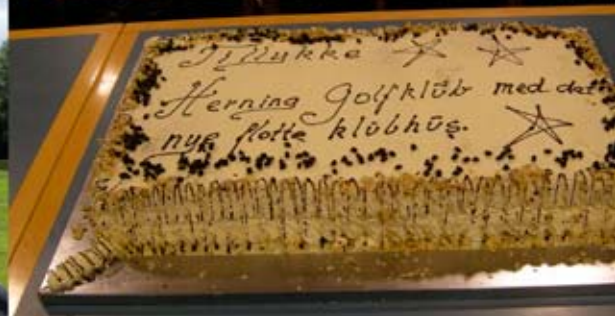 Tillykke
Herning Golfklub med det
nye flotte klubhus.